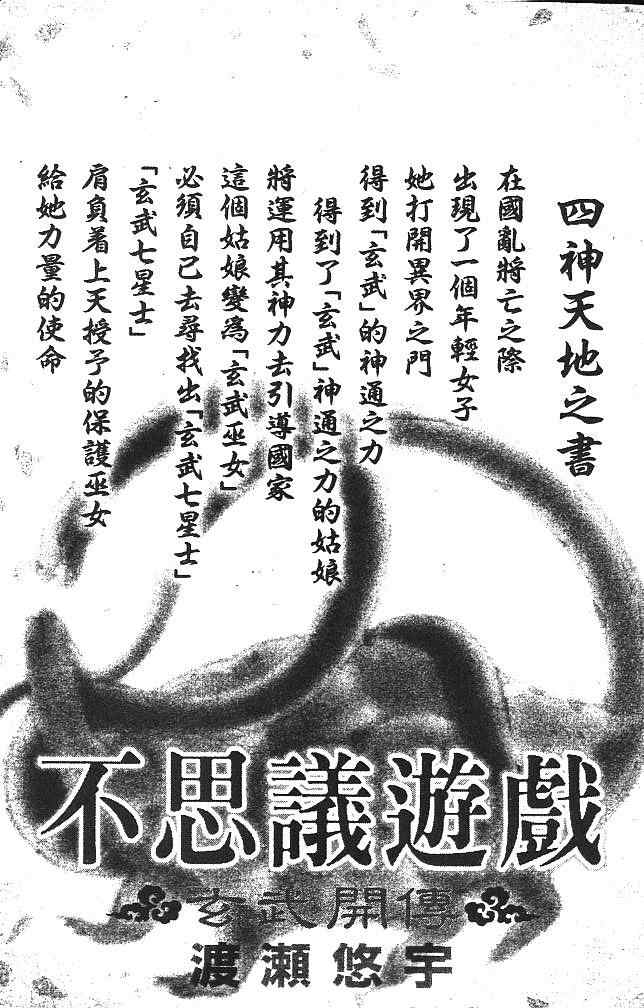 四神天地之書
在國亂將亡之際
出現了一個年輕女子
她打開異界之門
得到「玄武」的神通之力
得到了「玄武」神通之力的姑娘
將運用其神力去引導國家
這個姑娘變為「玄武巫女」
必須自己去尋找出「玄武七星士」
「玄武七星士」
肩負着上天授予的保護巫女
給她力量的使命
不思議遊戲
玄武開傳
渡瀨悠宇